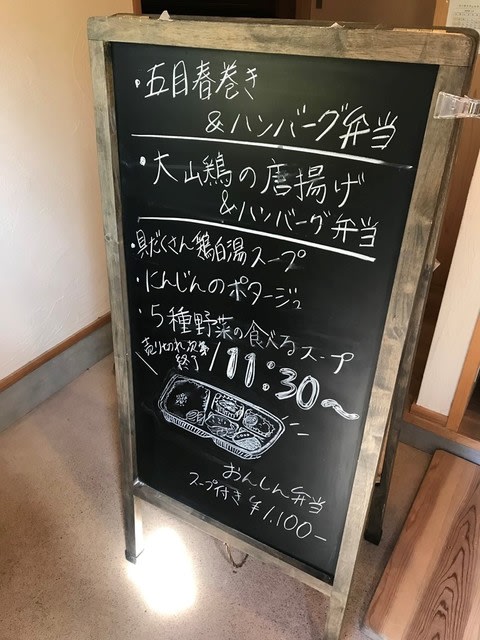 ・五目春巻き
&ハンバーグ弁当
・大山鶏の唐揚げ
&ハンバーグ弁当
・具だくさん鶏白湯スープ
・にんじんのポタージュ
・5種野菜の食べるスープ
売り切れ次第
終了
11:30〜
おんしん弁当
スープ付き ¥1,100-